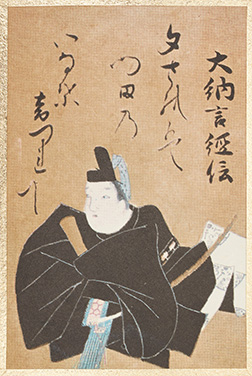 大納言經信
夕されハ
門田乃
いな葉
音つれて